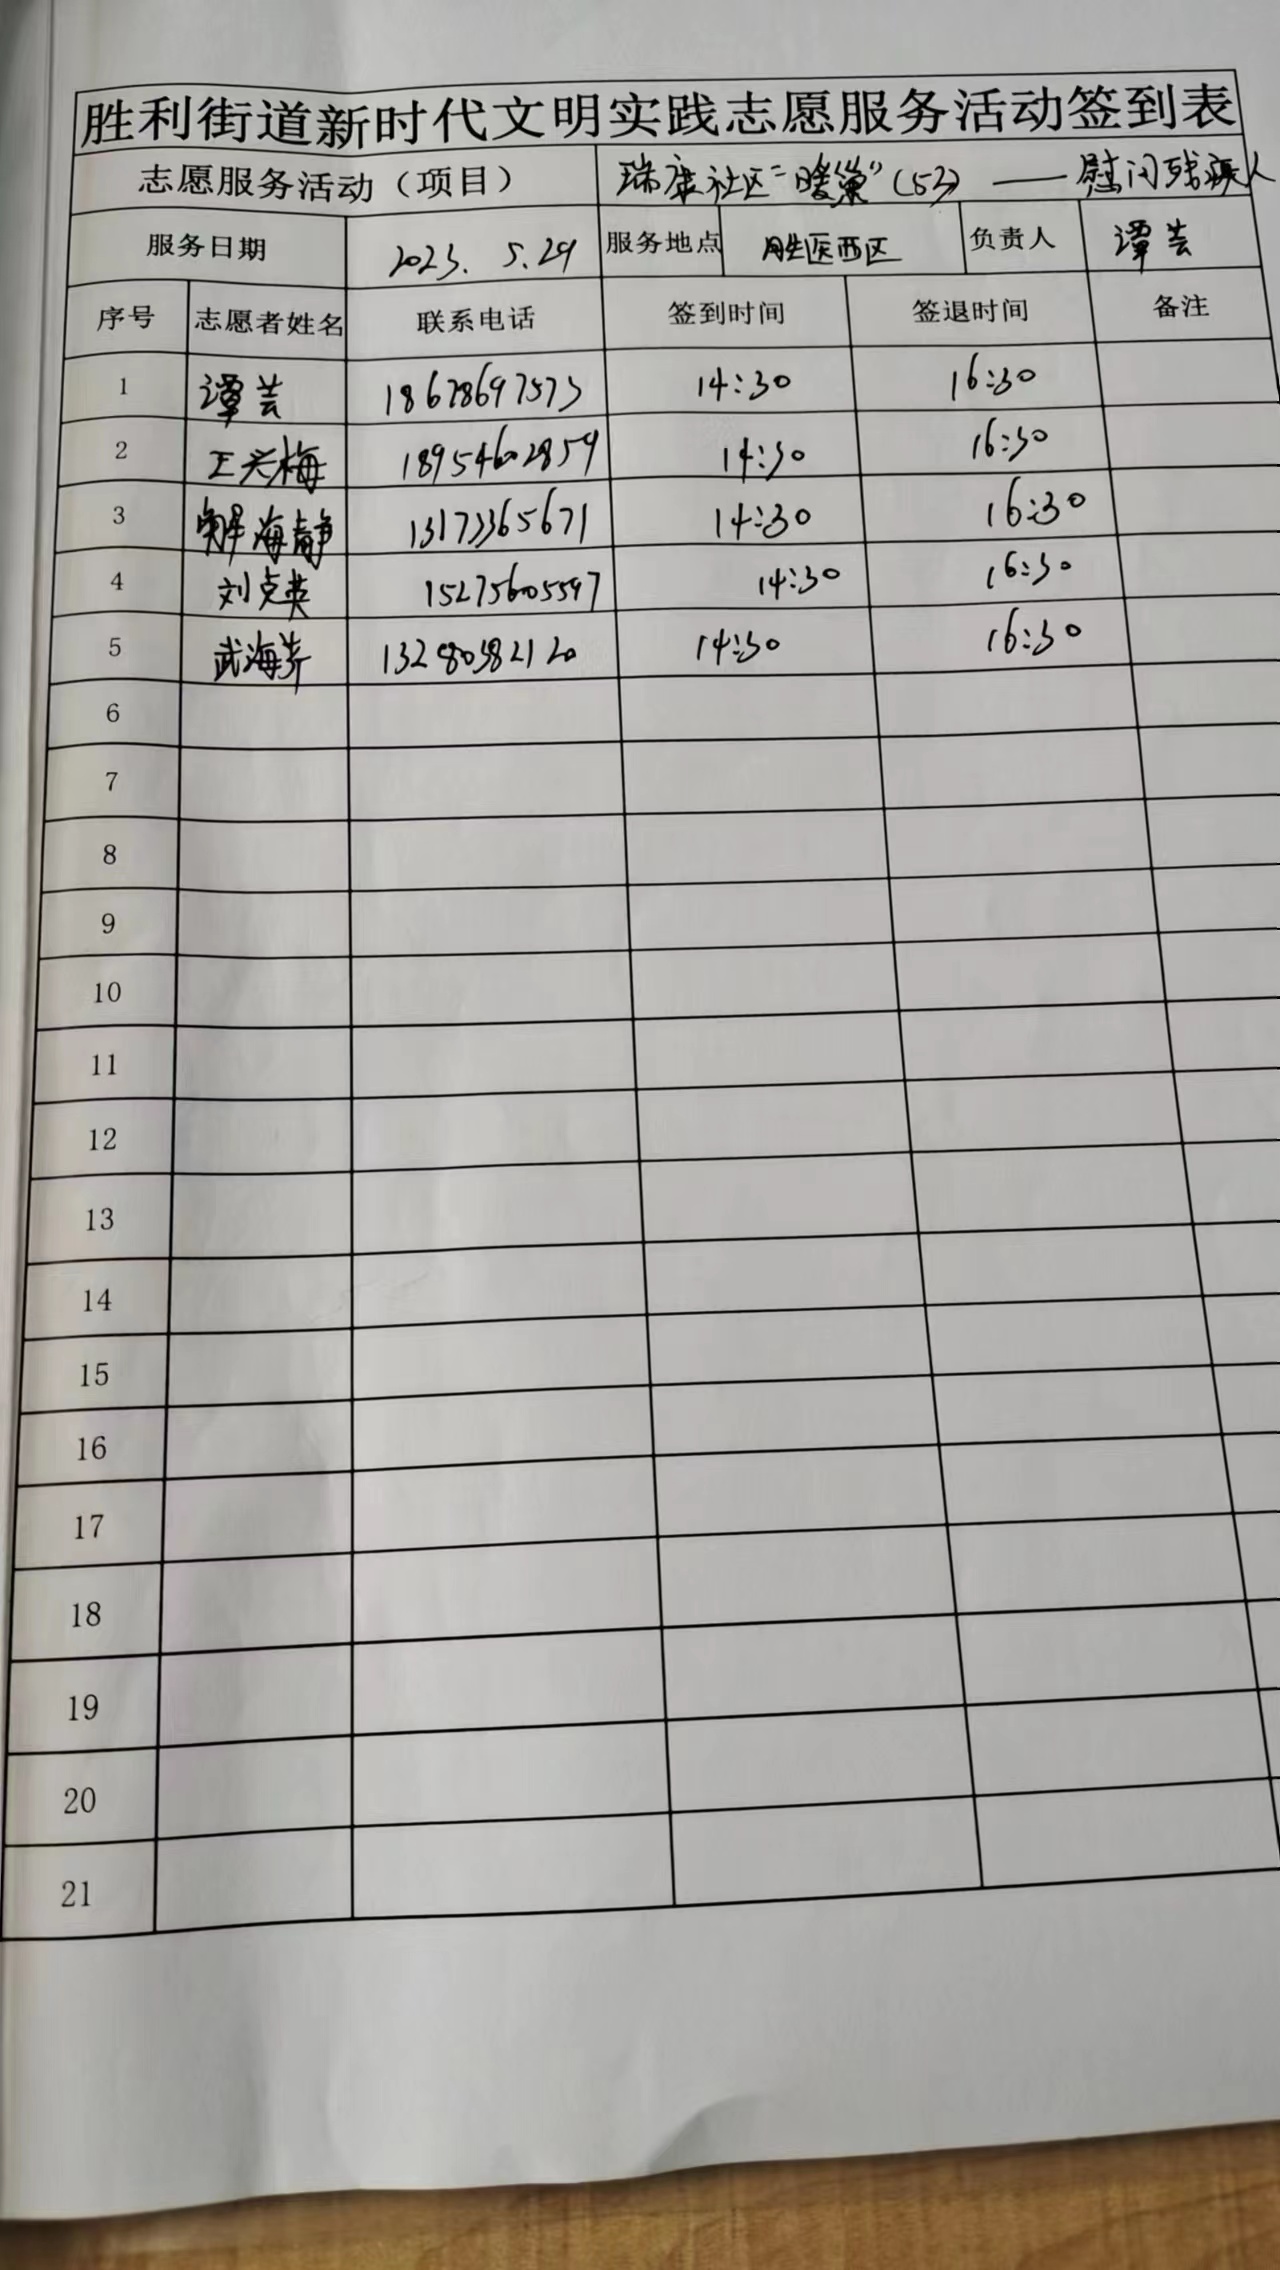 胜利街道新时代文明实践志愿服务活动签到表
志愿服务活动（项目） 瑞康社区“暖巢”（53）——慰问残疾人
服务日期 2023. 5.29 服务地点 胜医西区 负责人 谭芸
序号 志愿者姓名 联系电话 签到时间 签退时间 备注
1 谭芸 18678697573 14:30 16:30
2 王兴梅 18954602859 14:30 16:30
3 解海静 13173365671 14:30 16:30
4 刘贞英 15275605597 14:30 16:30
5 武海荞 13280382120 14:30 16:30
6
7
8
9
10
11
12
13
14
15
16
17
18
19
20
21